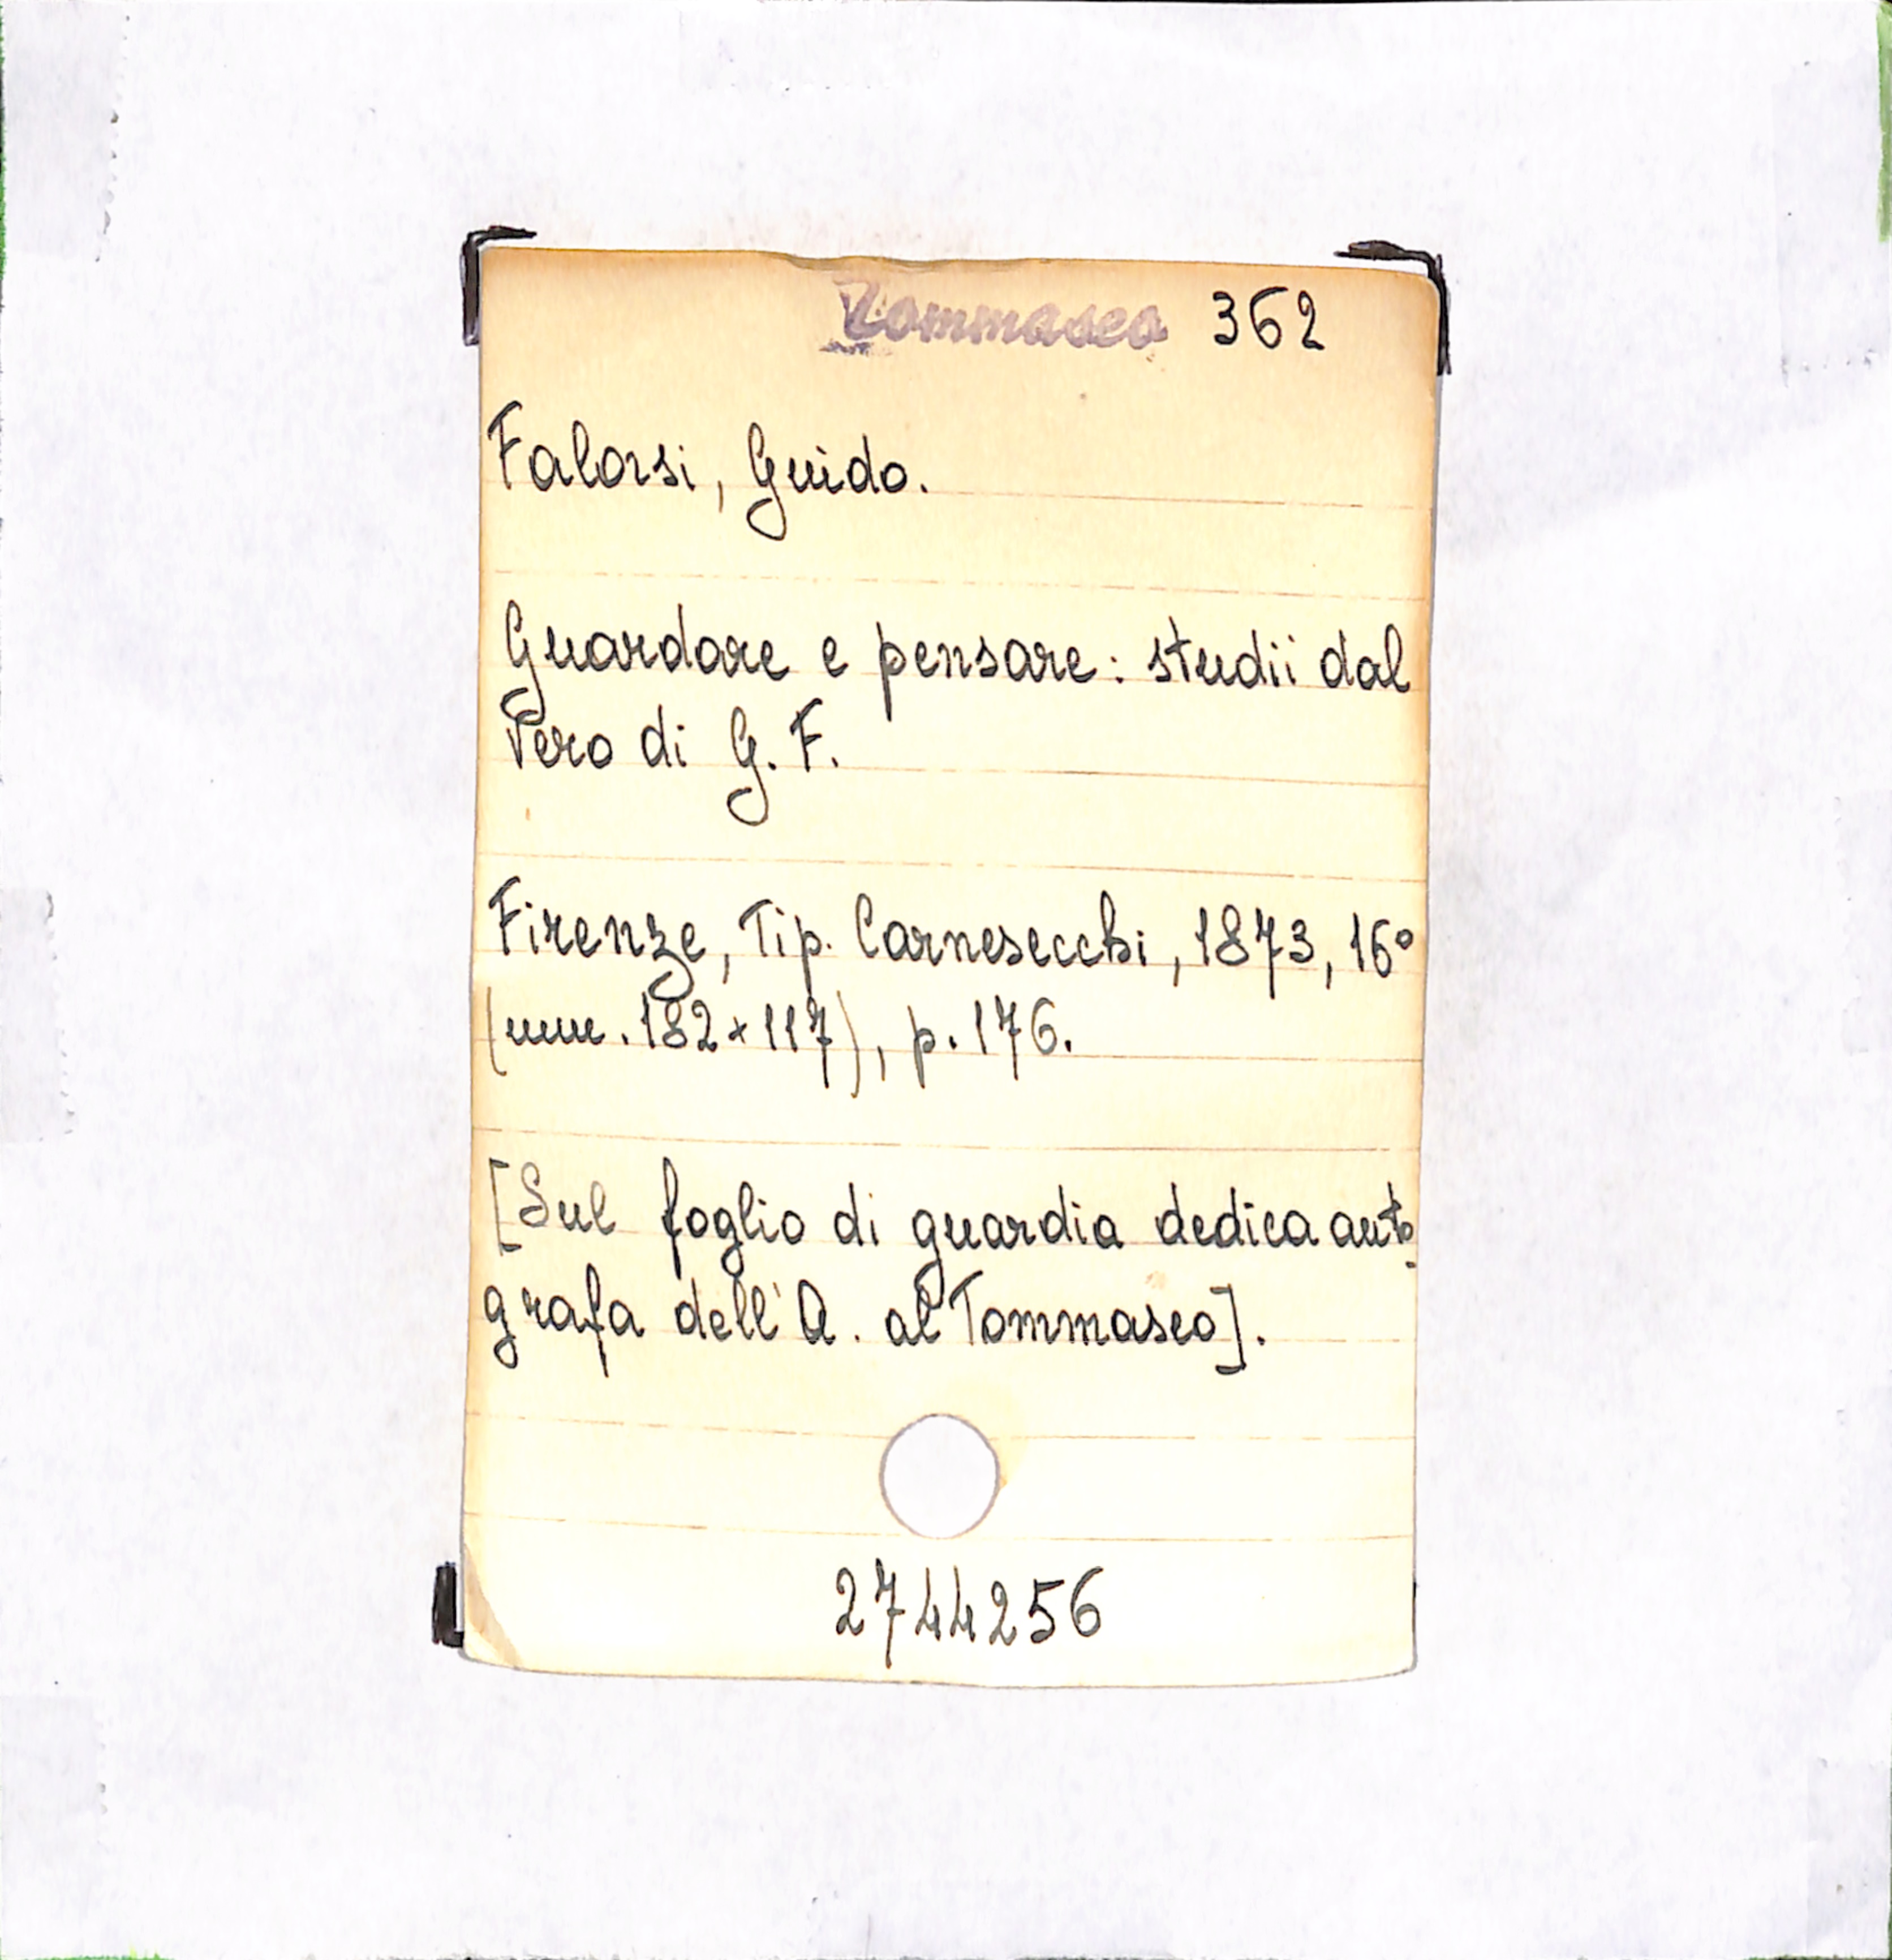 Tommaseo 362
Falorsi, Guido.
Guardare e pensare: studii dal
Vero di G. F.
Firenze, Tip. Carnesecchi, 1873, 16°
(mm. 182×117), p. 176.
[Sul foglio di guardia dedica auto-
grafa dell'A. al Tommaseo].
2744256